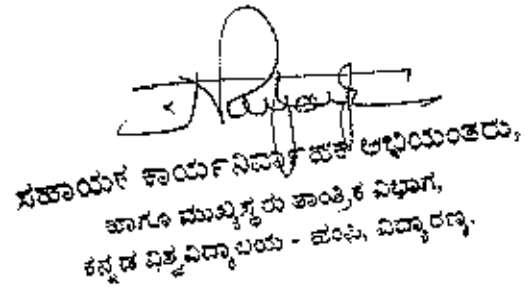 ಸಹಾಯಕ ಕಾರ್ಯನಿರ್ವಾಹಕ ಅಭಿಯಂತರು,
ಹಾಗೂ ಮುಖ್ಯಸ್ಥರು ತಾಂತ್ರಿಕ ವಿಭಾಗ,
ಕನ್ನಡ ವಿಶ್ವವಿದ್ಯಾಲಯ - ಹಂಪಿ, ವಿದ್ಯಾರಣ್ಯ.